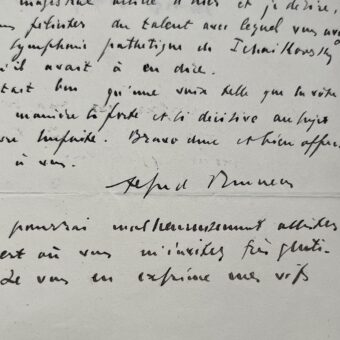 magistral article d'hier et je désire,
féliciter du talent avec lequel vous
Symphonie pathétique de Tchaïkovsky
qu'il avait à en dire.
était bon qu'une voix telle que la vôtre
manière forte et si décisive au sujet
. Bravo donc et bien
à vous.
Alfred Bruneau
pourrai malheureusement assister
où vous m'invitez très
Je vous en exprime mes vifs